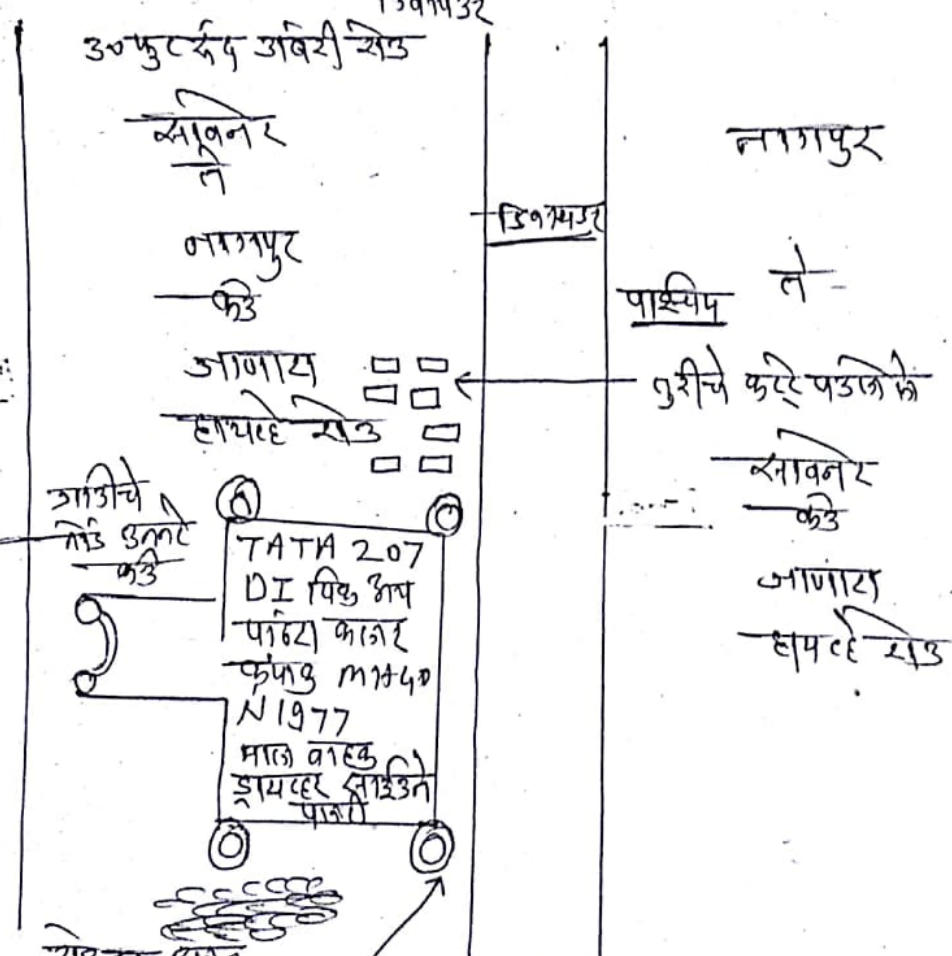 डिवायडर
३० फुट रुंद डांबरी रोड
सावनेर
ते
नागपुर
कडे
जाणारा
हायव्हे रोड
डिवायडर
नागपुर
ते
पश्चिम
तुरीचे कट्टे पडलेले
सावनेर
कडे
जाणारा
हायव्हे रोड
गाडीचे
तोंड उलटे
कडे
TATA 207
DI पिकअप
पांढरा कलर
क्रमांक MH40
N1977
माल वाहक
ड्रायव्हर साईडने
पलटी